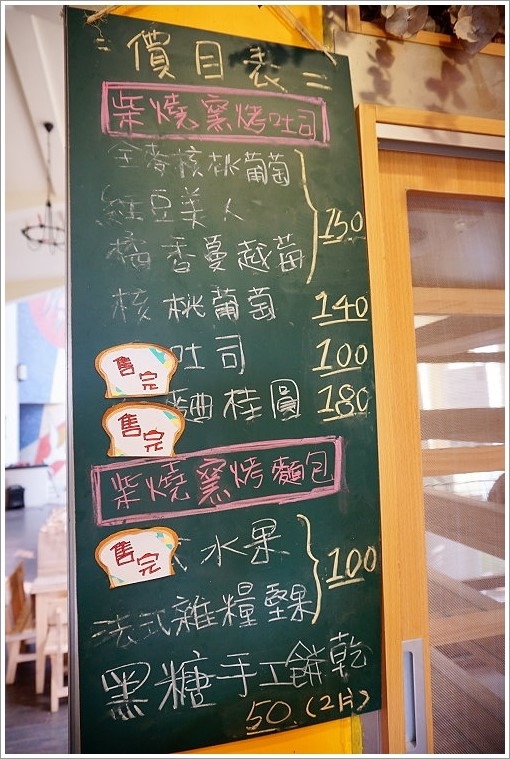 價目表
柴燒窯烤吐司
全麥核桃葡萄
紅豆美人 150
橘香蔓越莓
核桃葡萄 140
售完 吐司 100
售完 麯桂圓 180
柴燒窯烤麵包
售完 水果
100
法式雜糧堅果
黑糖手工餅乾
50(2片)